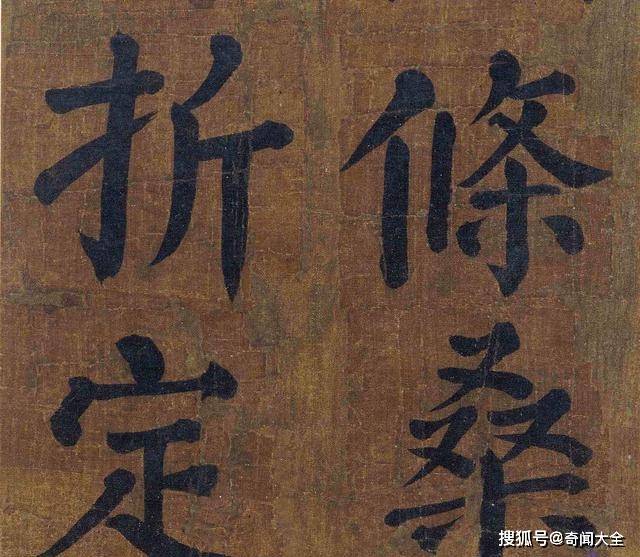 條桑
折定
搜狐号@奇闻大全